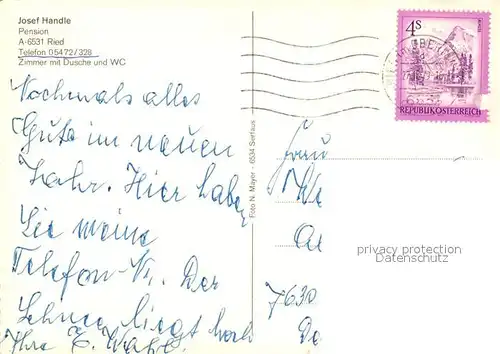 Josef Handle
Pension
A-6531 Ried
Telefon 05472/328
Zimmer mit Dusche und WC
Nochmals alles
Gute im neuen
Jahr. Hier haben
Sie meine
Telefon-Nr. Der
Schnee liegt hoch
Ihre E.
Foto N. Mayer · 6534 Serfaus
4s
REPUBLIK ÖSTERREICH
Frau
We
7630
privacy protection
Datenschutz